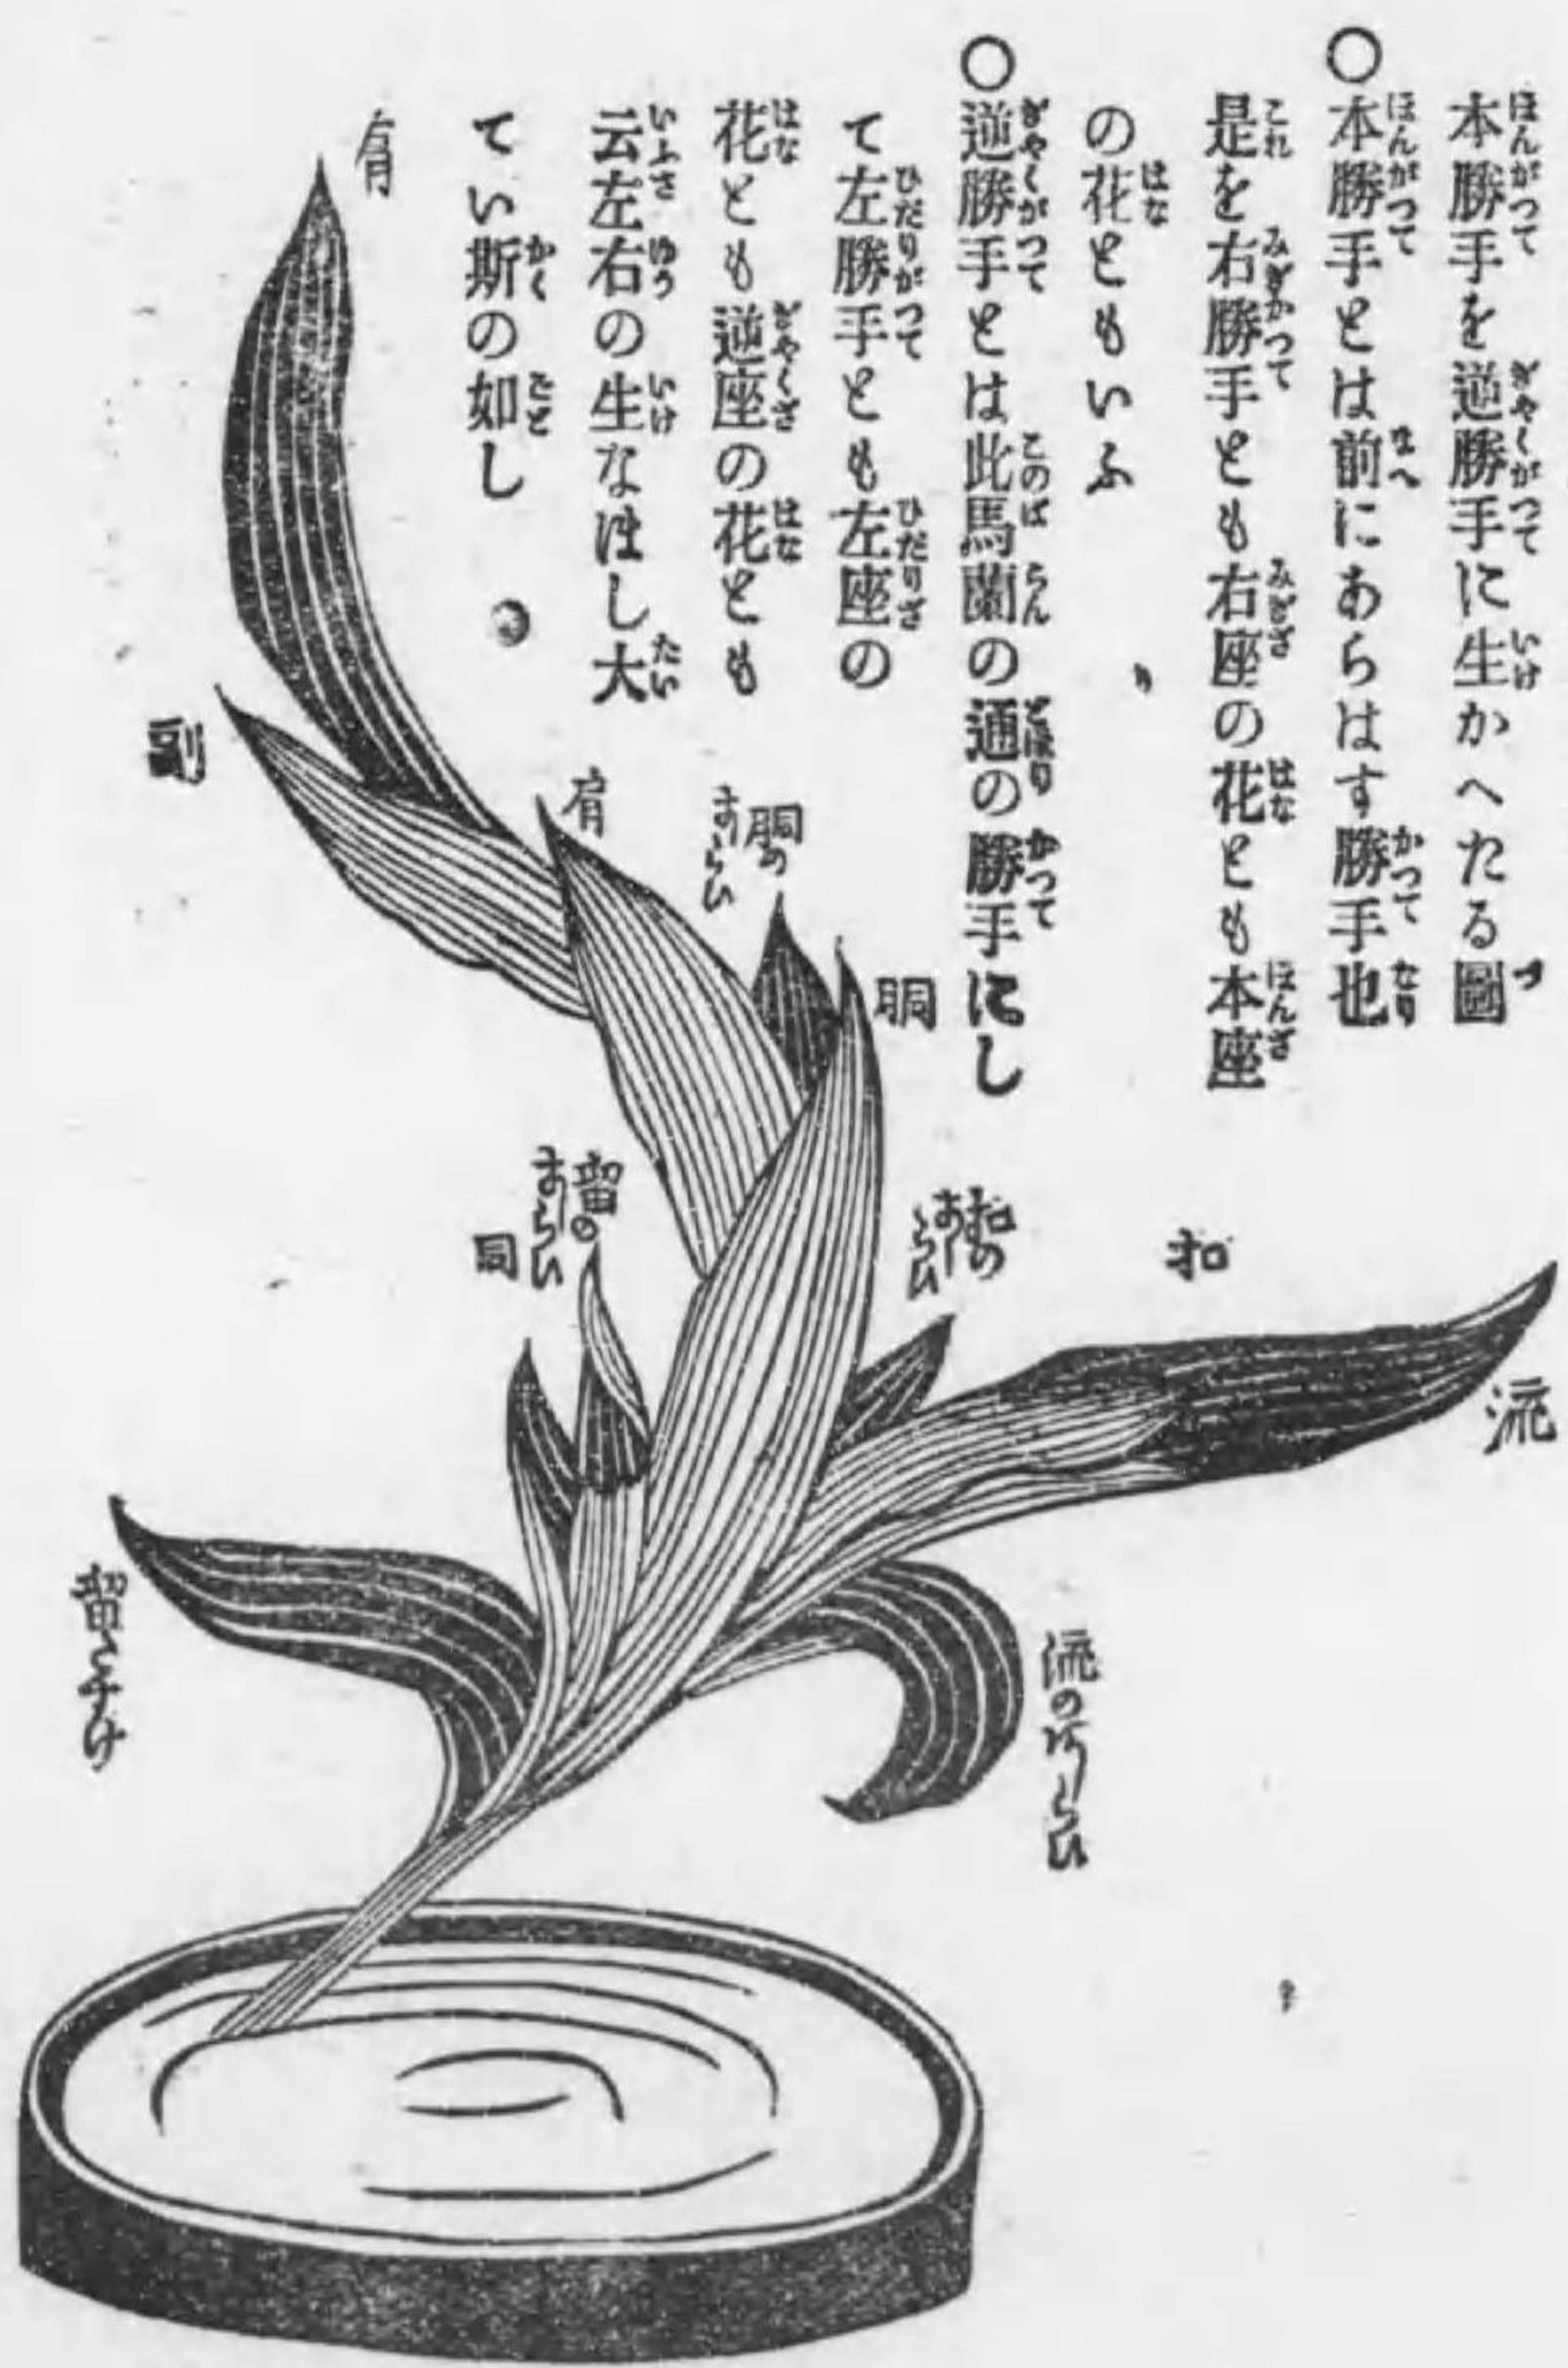 本勝手を逆勝手に生かへたる圖
〇本勝手とは前にあらはす勝手也
是を右勝手とも右座の花とも本座
の花ともいふ
〇逆勝手とは此馬蘭の通の勝手にし
て左勝手とも左座の
花とも逆座の花とも
云左右の生なほし大
てい斯の如し
副
肩
胴の
あしらひ
胴
留の
あしらひ
同
扣の
あしらひ
扣
流
流のあしらひ